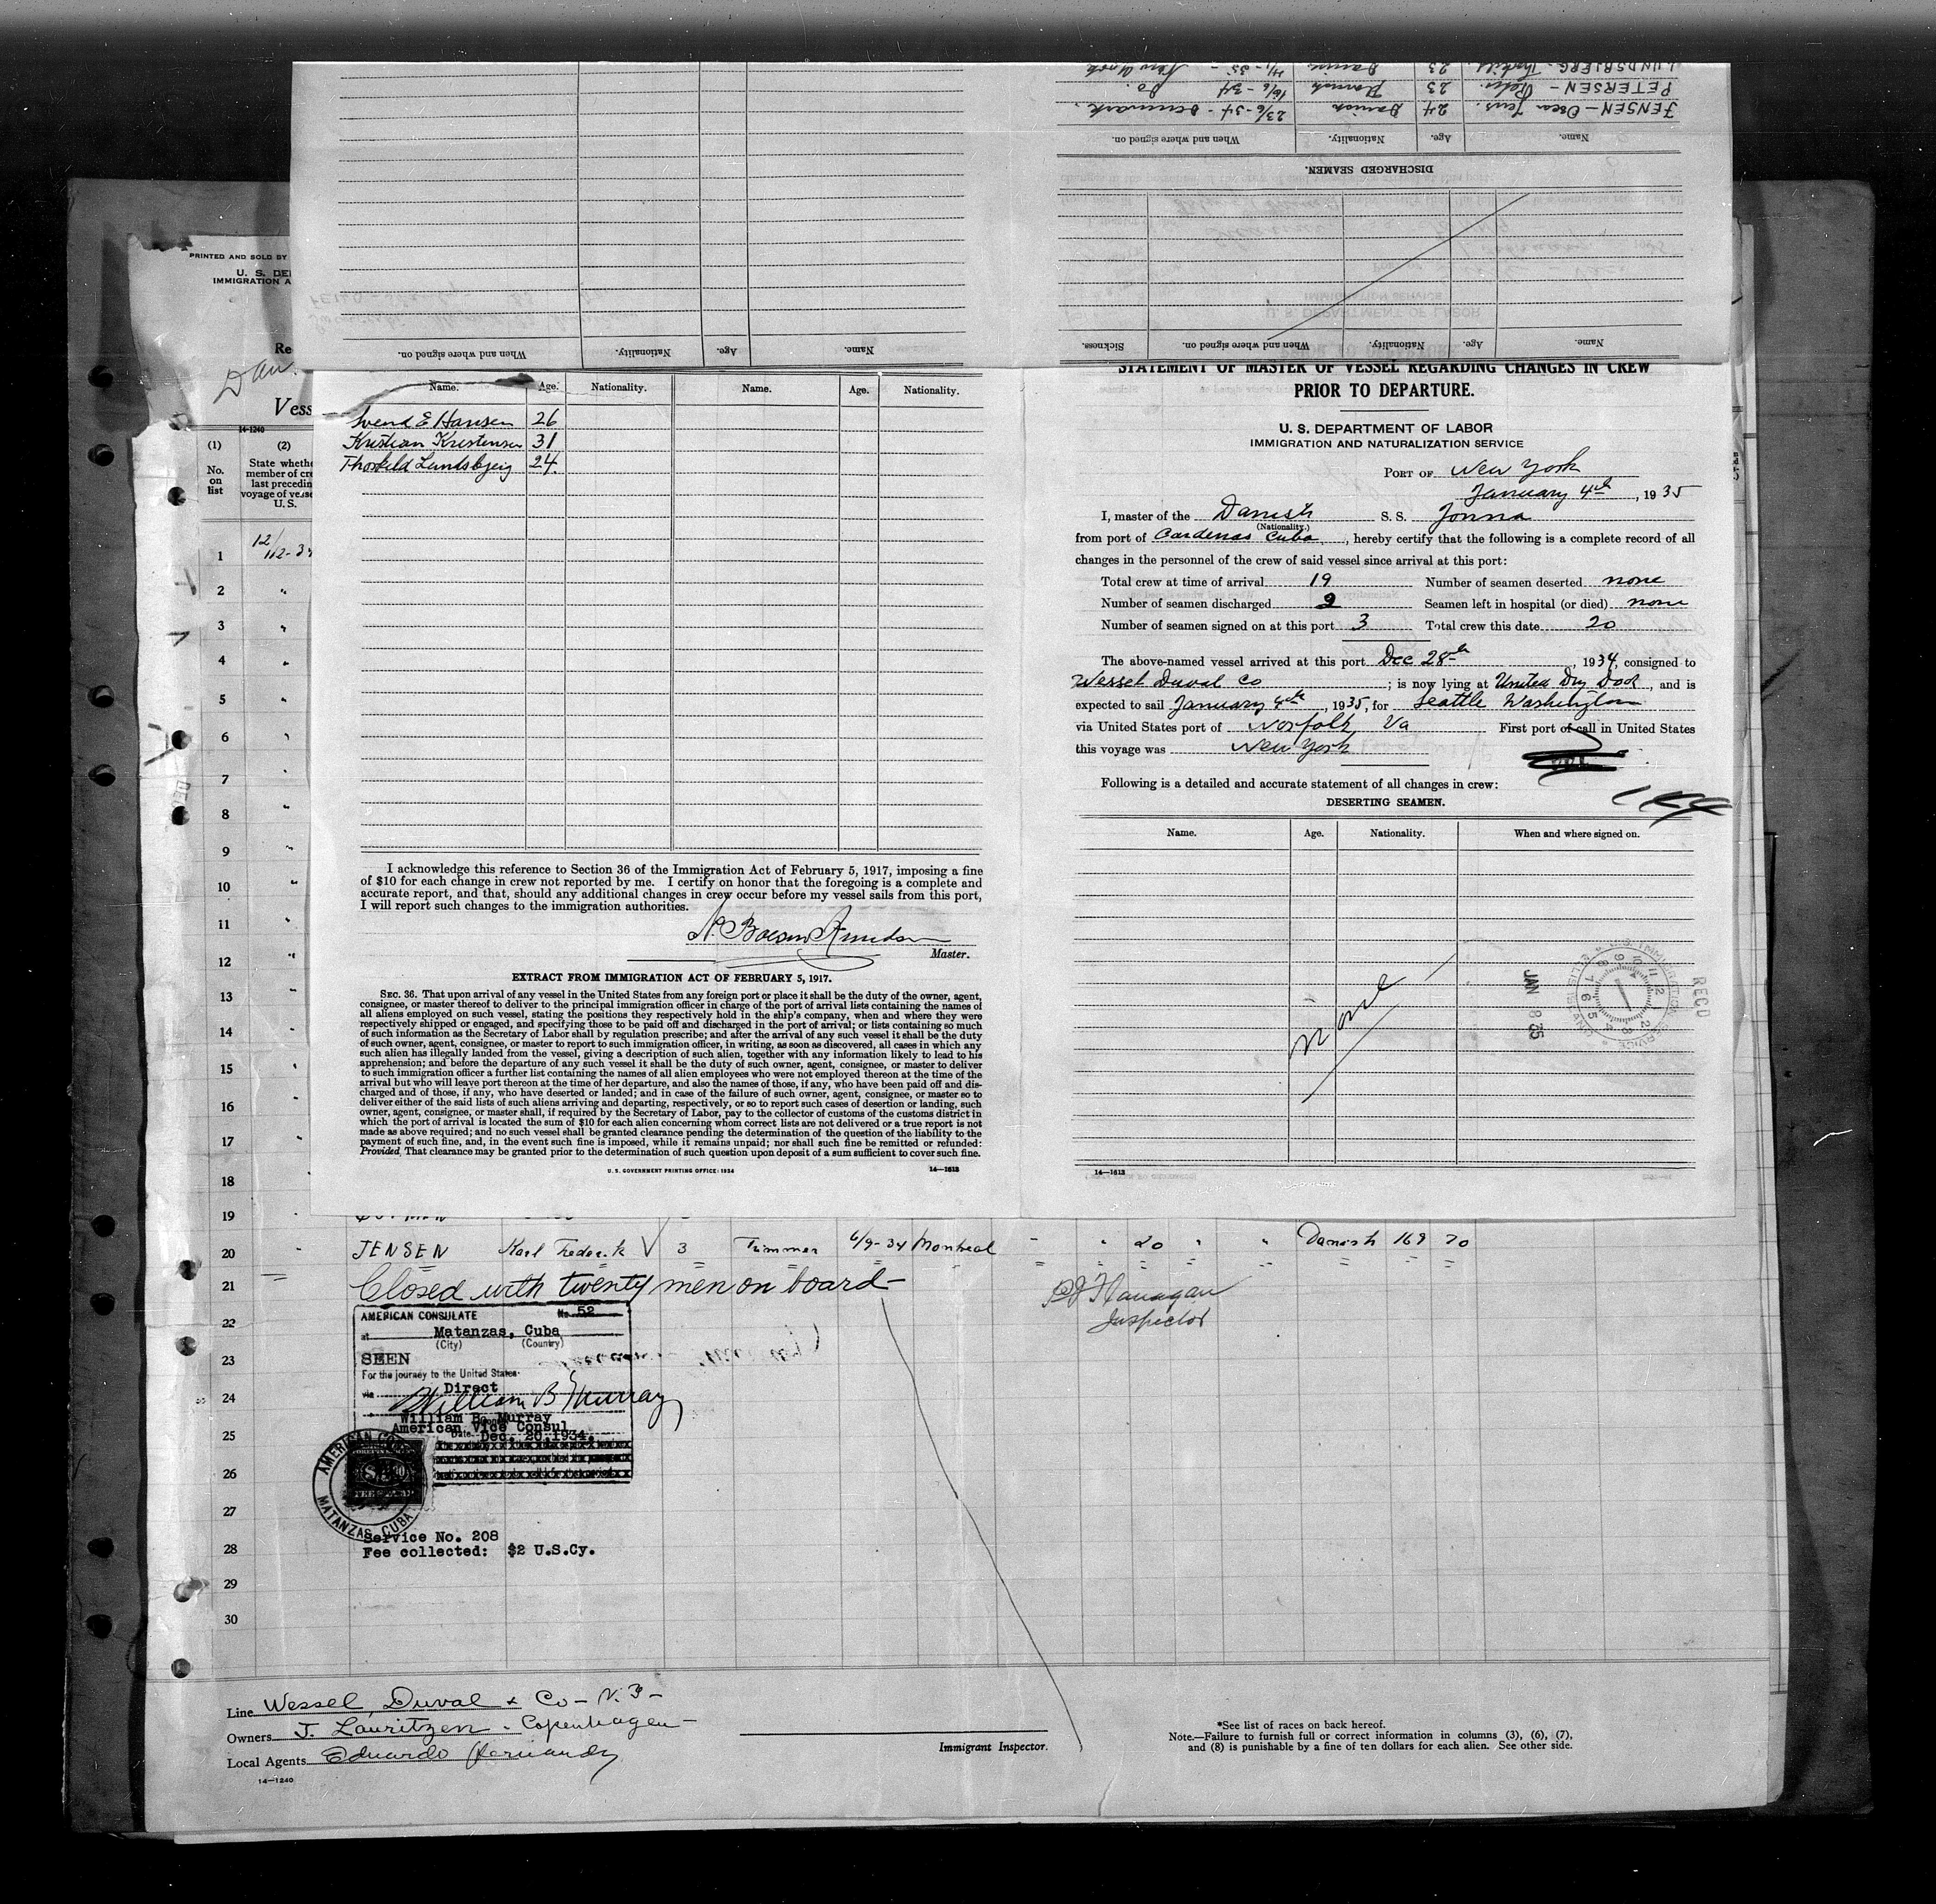 Name. Age. Nationality. When and where signed on.
Name. Age. Nationality. When and where signed on. Sickness.
DISCHARGED SEAMEN.
Name. Age. Nationality. When and where signed on.
JENSEN - Jens. 24 Danish 23/6-34 - Denmark.
PETERSEN - Peder. 23 Danish 16/6-34 Do.
LUNDSBJERG. Thorkild. 23 Danish New York
PRINTED AND SOLD BY
U. S. DE
IMMIGRATION A
Re
Dan.
Vess
14-1240
(1) (2)
No. on list
State whethe
member of cre
last precedin
voyage of vesse
U. S.
1
2
3
4
5
6
7
8
9
10
11
12
13
14
15
16
17
18
19
Name. Age. Nationality. Name. Age. Nationality.
Svend E Hansen 26
Kristian Kristensen 31
Thorkild Lundsbjerg 24.
I acknowledge this reference to Section 36 of the Immigration Act of February 5, 1917, imposing a fine
of $10 for each change in crew not reported by me. I certify on honor that the foregoing is a complete and
accurate report, and that, should any additional changes in crew occur before my vessel sails from this port,
I will report such changes to the immigration authorities.
Master.
EXTRACT FROM IMMIGRATION ACT OF FEBRUARY 5, 1917.
SEC. 36. That upon arrival of any vessel in the United States from any foreign port or place it shall be the duty of the owner, agent,
consignee, or master thereof to deliver to the principal immigration officer in charge of the port of arrival lists containing the names of
all aliens employed on such vessel, stating the positions they respectively hold in the ship's company, when and where they were
respectively shipped or engaged, and specifying those to be paid off and discharged in the port of arrival; or lists containing so much
of such information as the Secretary of Labor shall by regulation prescribe; and after the arrival of any such vessel it shall be the duty
of such owner, agent, consignee, or master to report to such immigration officer, in writing, as soon as discovered, all cases in which any
such alien has illegally landed from the vessel, giving a description of such alien, together with any information likely to lead to his
apprehension; and before the departure of any such vessel it shall be the duty of such owner, agent, consignee, or master to deliver
to such immigration officer a further list containing the names of all alien employees who were not employed thereon at the time of the
arrival but who will leave port thereon at the time of her departure, and also the names of those, if any, who have been paid off and dis-
charged and of those, if any, who have deserted or landed; and in case of the failure of such owner, agent, consignee, or master so to
deliver either of the said lists of such aliens arriving and departing, respectively, or so to report such cases of desertion or landing, such
owner, agent, consignee, or master shall, if required by the Secretary of Labor, pay to the collector of customs of the customs district in
which the port of arrival is located the sum of $10 for each alien concerning whom correct lists are not delivered or a true report is not
made as above required; and no such vessel shall be granted clearance pending the determination of the question of the liability to the
payment of such fine, and, in the event such fine is imposed, while it remains unpaid; nor shall such fine be remitted or refunded:
Provided, That clearance may be granted prior to the determination of such question upon deposit of a sum sufficient to cover such fine.
U. S. GOVERNMENT PRINTING OFFICE: 1934 14—1613
STATEMENT OF MASTER OF VESSEL REGARDING CHANGES IN CREW
PRIOR TO DEPARTURE.
U. S. DEPARTMENT OF LABOR
IMMIGRATION AND NATURALIZATION SERVICE
PORT OF New York
January 4th, 1935
I, master of the Danish S. S. Jonna
(Nationality.)
from port of Cardenas Cuba, hereby certify that the following is a complete record of all
changes in the personnel of the crew of said vessel since arrival at this port:
Total crew at time of arrival 19 Number of seamen deserted none
Number of seamen discharged 2 Seamen left in hospital (or died) none
Number of seamen signed on at this port 3 Total crew this date 20
The above-named vessel arrived at this port Dec 28th, 1934, consigned to
Wessel Duval Co; is now lying at United Dry Dock, and is
expected to sail January 4th, 1935, for Seattle Washington
via United States port of Norfolk Va First port of call in United States
this voyage was New York
Following is a detailed and accurate statement of all changes in crew:
DESERTING SEAMEN.
Name. Age. Nationality. When and where signed on.
none
REC'D
JAN 8 35
U. S. IMMIGRATION SERVICE
ELLIS ISLAND
14—1613
20 JENSEN Karl Frederik 3 Trimmer 6/9-34 Montreal 20 Danish 169 70
21 Closed with twenty men on board—
Flanagan
Inspector
22
23
24
25
26
27
28
29
30
AMERICAN CONSULATE No. 52
at Matanzas, Cuba
(City) (Country)
SEEN
For the journey to the United States
via Direct
William B Murray
William B. Murray
American Vice Consul
Date Dec. 20, 1934.
AMERICAN CO
MATANZAS, CUBA
Service No. 208
Fee collected: $2 U.S.Cy.
Line Wessel, Duval & Co - N.Y-
Owners J. Lauritzen - Copenhagen-
Local Agents Eduardo Hernandez
14—1240
Immigrant Inspector.
*See list of races on back hereof.
Note.—Failure to furnish full or correct information in columns (3), (6), (7),
and (8) is punishable by a fine of ten dollars for each alien. See other side.